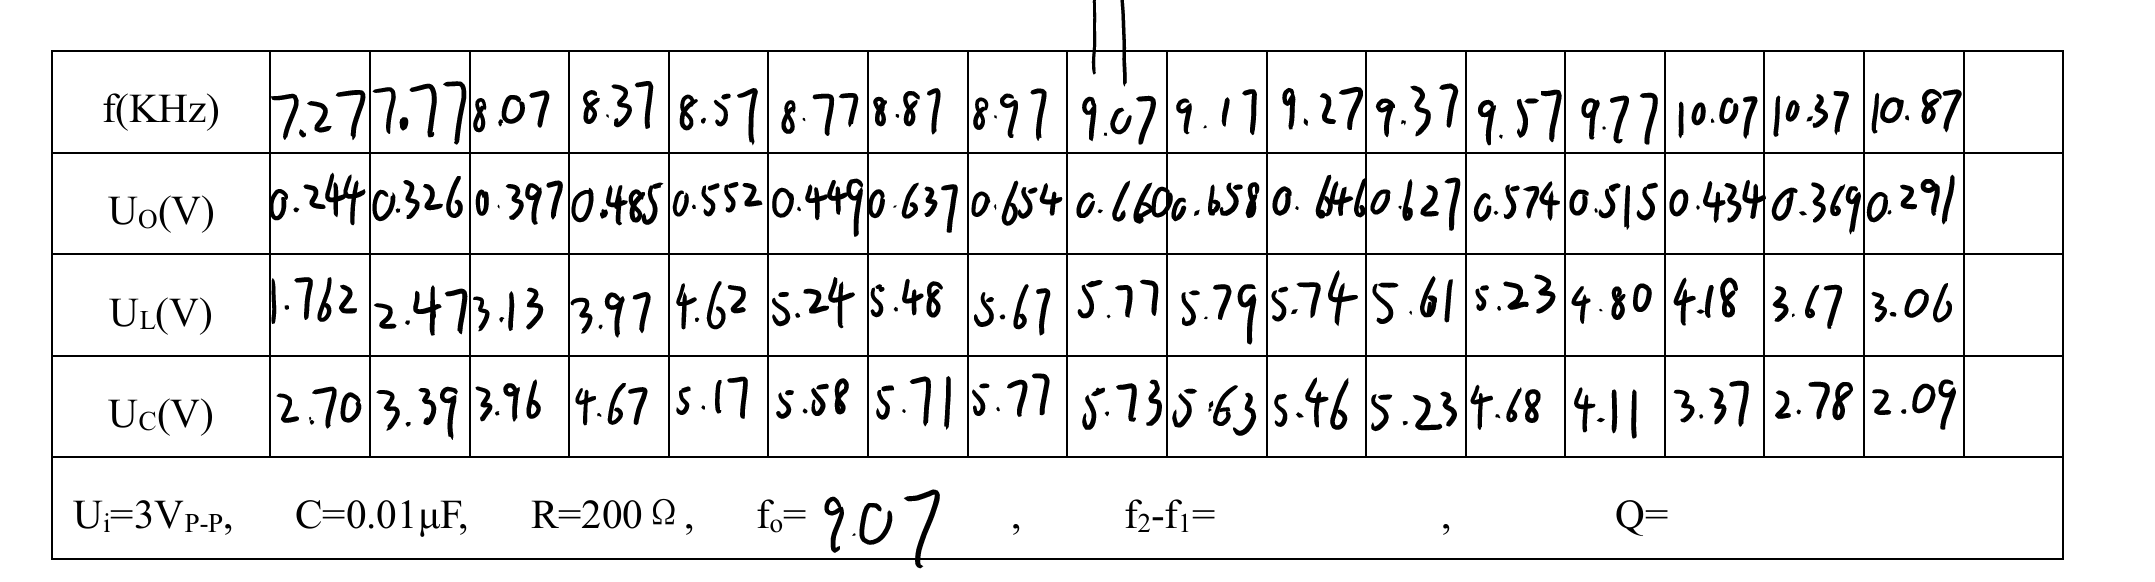 f(KHz) 7.27 7.77 8.07 8.37 8.57 8.77 8.87 8.97 9.07 9.17 9.27 9.37 9.57 9.77 10.07 10.37 10.87
UO(V) 0.244 0.326 0.397 0.485 0.552 0.449 0.637 0.654 0.660 0.658 0.646 0.627 0.574 0.515 0.434 0.369 0.291
UL(V) 1.762 2.47 3.13 3.97 4.62 5.24 5.48 5.67 5.77 5.79 5.74 5.61 5.23 4.80 4.18 3.67 3.06
UC(V) 2.70 3.39 3.96 4.67 5.17 5.58 5.71 5.77 5.73 5.63 5.46 5.23 4.68 4.11 3.37 2.78 2.09
Ui=3VP-P, C=0.01μF, R=200Ω, fo= 9.07 , f2-f1= , Q=